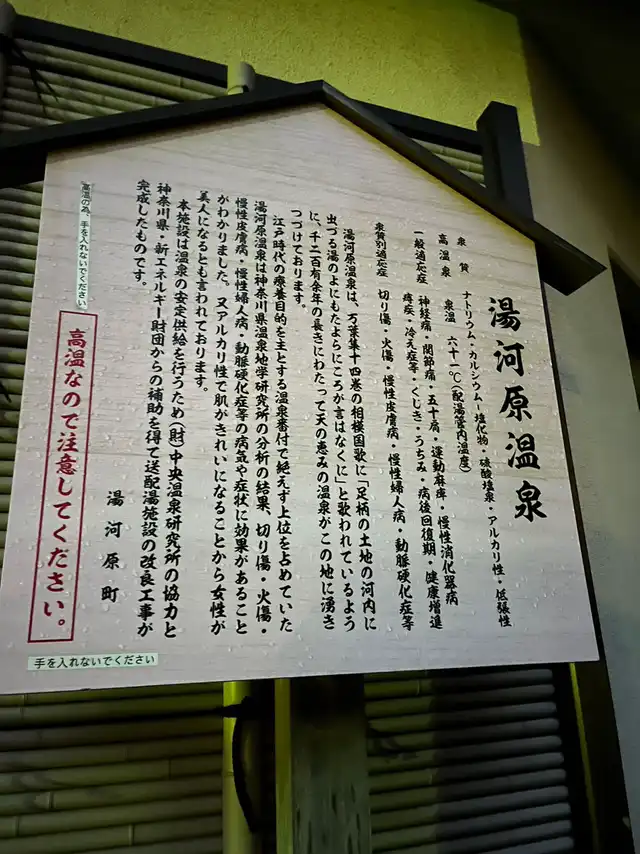 湯河原温泉
泉質　ナトリウム・カルシウム・塩化物・硫酸塩泉・アルカリ性・低張性
高温泉　泉温　六十一℃(配湯管内温度)
一般適応症　神経痛・関節痛・五十肩・運動麻痺・慢性消化器病
痔疾・冷え症等・くじき・うちみ・病後回復期・健康増進
泉質別適応症　切り傷・火傷・慢性皮膚病・慢性婦人病・動脈硬化症等
湯河原温泉は、万葉集十四巻の相模国歌に「足柄の土地の河内に
出づる湯のよにもたよらにころが言はなくに」と歌われているよう
に、千二百有余年の長きにわたって天の恵みの温泉がこの地に湧き
つづけております。
江戸時代の療養目的を主とする温泉番付で絶えず上位を占めていた
湯河原温泉は神奈川県温泉地学研究所の分析の結果、切り傷・火傷・
慢性皮膚病・慢性婦人病・動脈硬化症等の病気や症状に効果があること
がわかりました。又アルカリ性で肌がきれいになることから女性が
美人になるとも言われております。
本施設は温泉の安定供給を行うため(財)中央温泉研究所の協力と
神奈川県・新エネルギー財団からの補助を得て送配湯施設の改良工事が
完成したものです。
湯河原町
高温なので注意してください。
高温の為、手を入れないでください
手を入れないでください